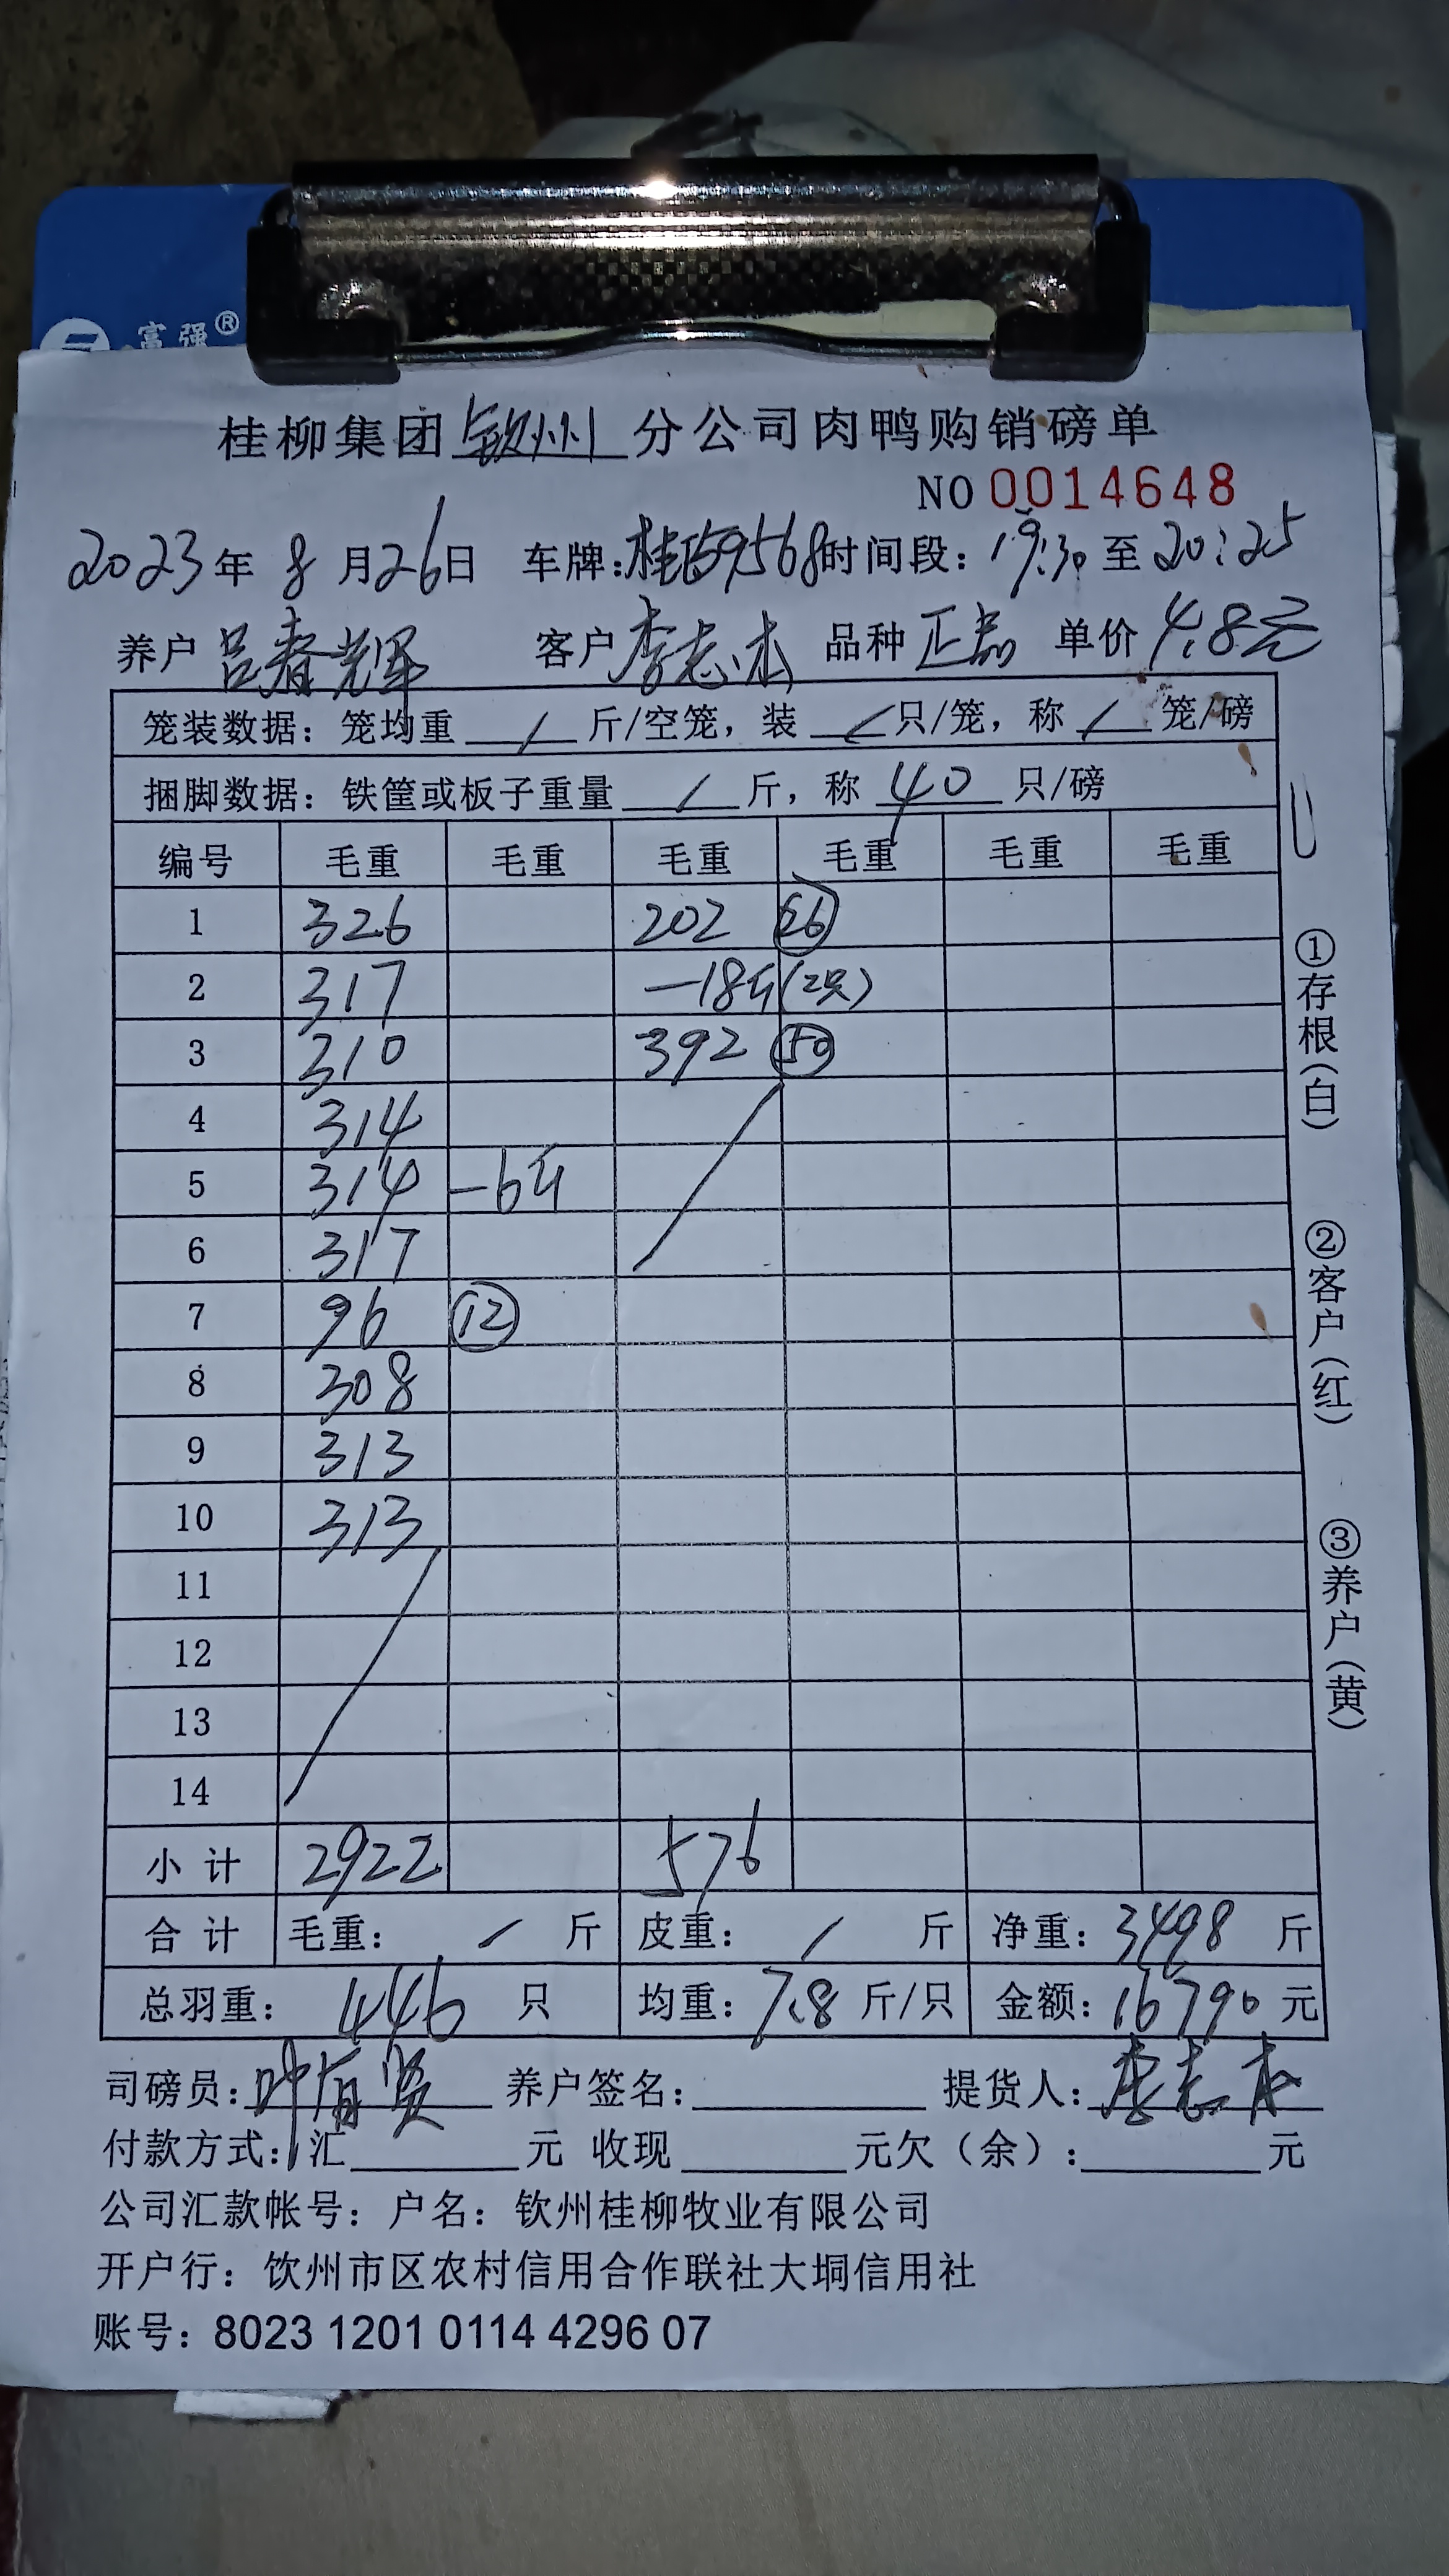 富强®
桂柳集团 钦州 分公司肉鸭购销磅单
NO 0014648
2023年 8 月26日 车牌:桂 59568 时间段: 19:30 至 20:25
养户 吕春辉 客户 李志 品种 正品 单价 4.8元
笼装数据: 笼均重 / 斤/空笼, 装 / 只/笼, 称 / 笼/磅
捆脚数据: 铁筐或板子重量 / 斤, 称 40 只/磅
编号 毛重 毛重 毛重 毛重 毛重 毛重
1 326 202 26
2 317 -18斤(2只)
3 310 392 50
4 314
5 314 -6斤
6 317
7 96 12
8 308
9 313
10 313
11
12
13
14
小 计 2922 576
合 计 毛重: / 斤 皮重: / 斤 净重: 3498 斤
总羽重: 446 只 均重: 7.8 斤/只 金额: 16790 元
司磅员: 叶有贤 养户签名: 提货人: 李志
付款方式: 汇 元 收现 元欠(余): 元
公司汇款帐号: 户名: 钦州桂柳牧业有限公司
开户行: 饮州市区农村信用合作联社大垌信用社
账号: 8023 1201 0114 4296 07
①存根(白)
②客户(红)
③养户(黄)